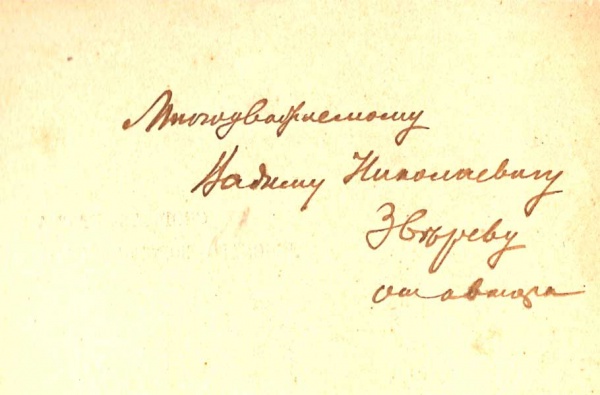 Многоуважаемому
Вадиму Николаевичу
Звѣреву
от автора